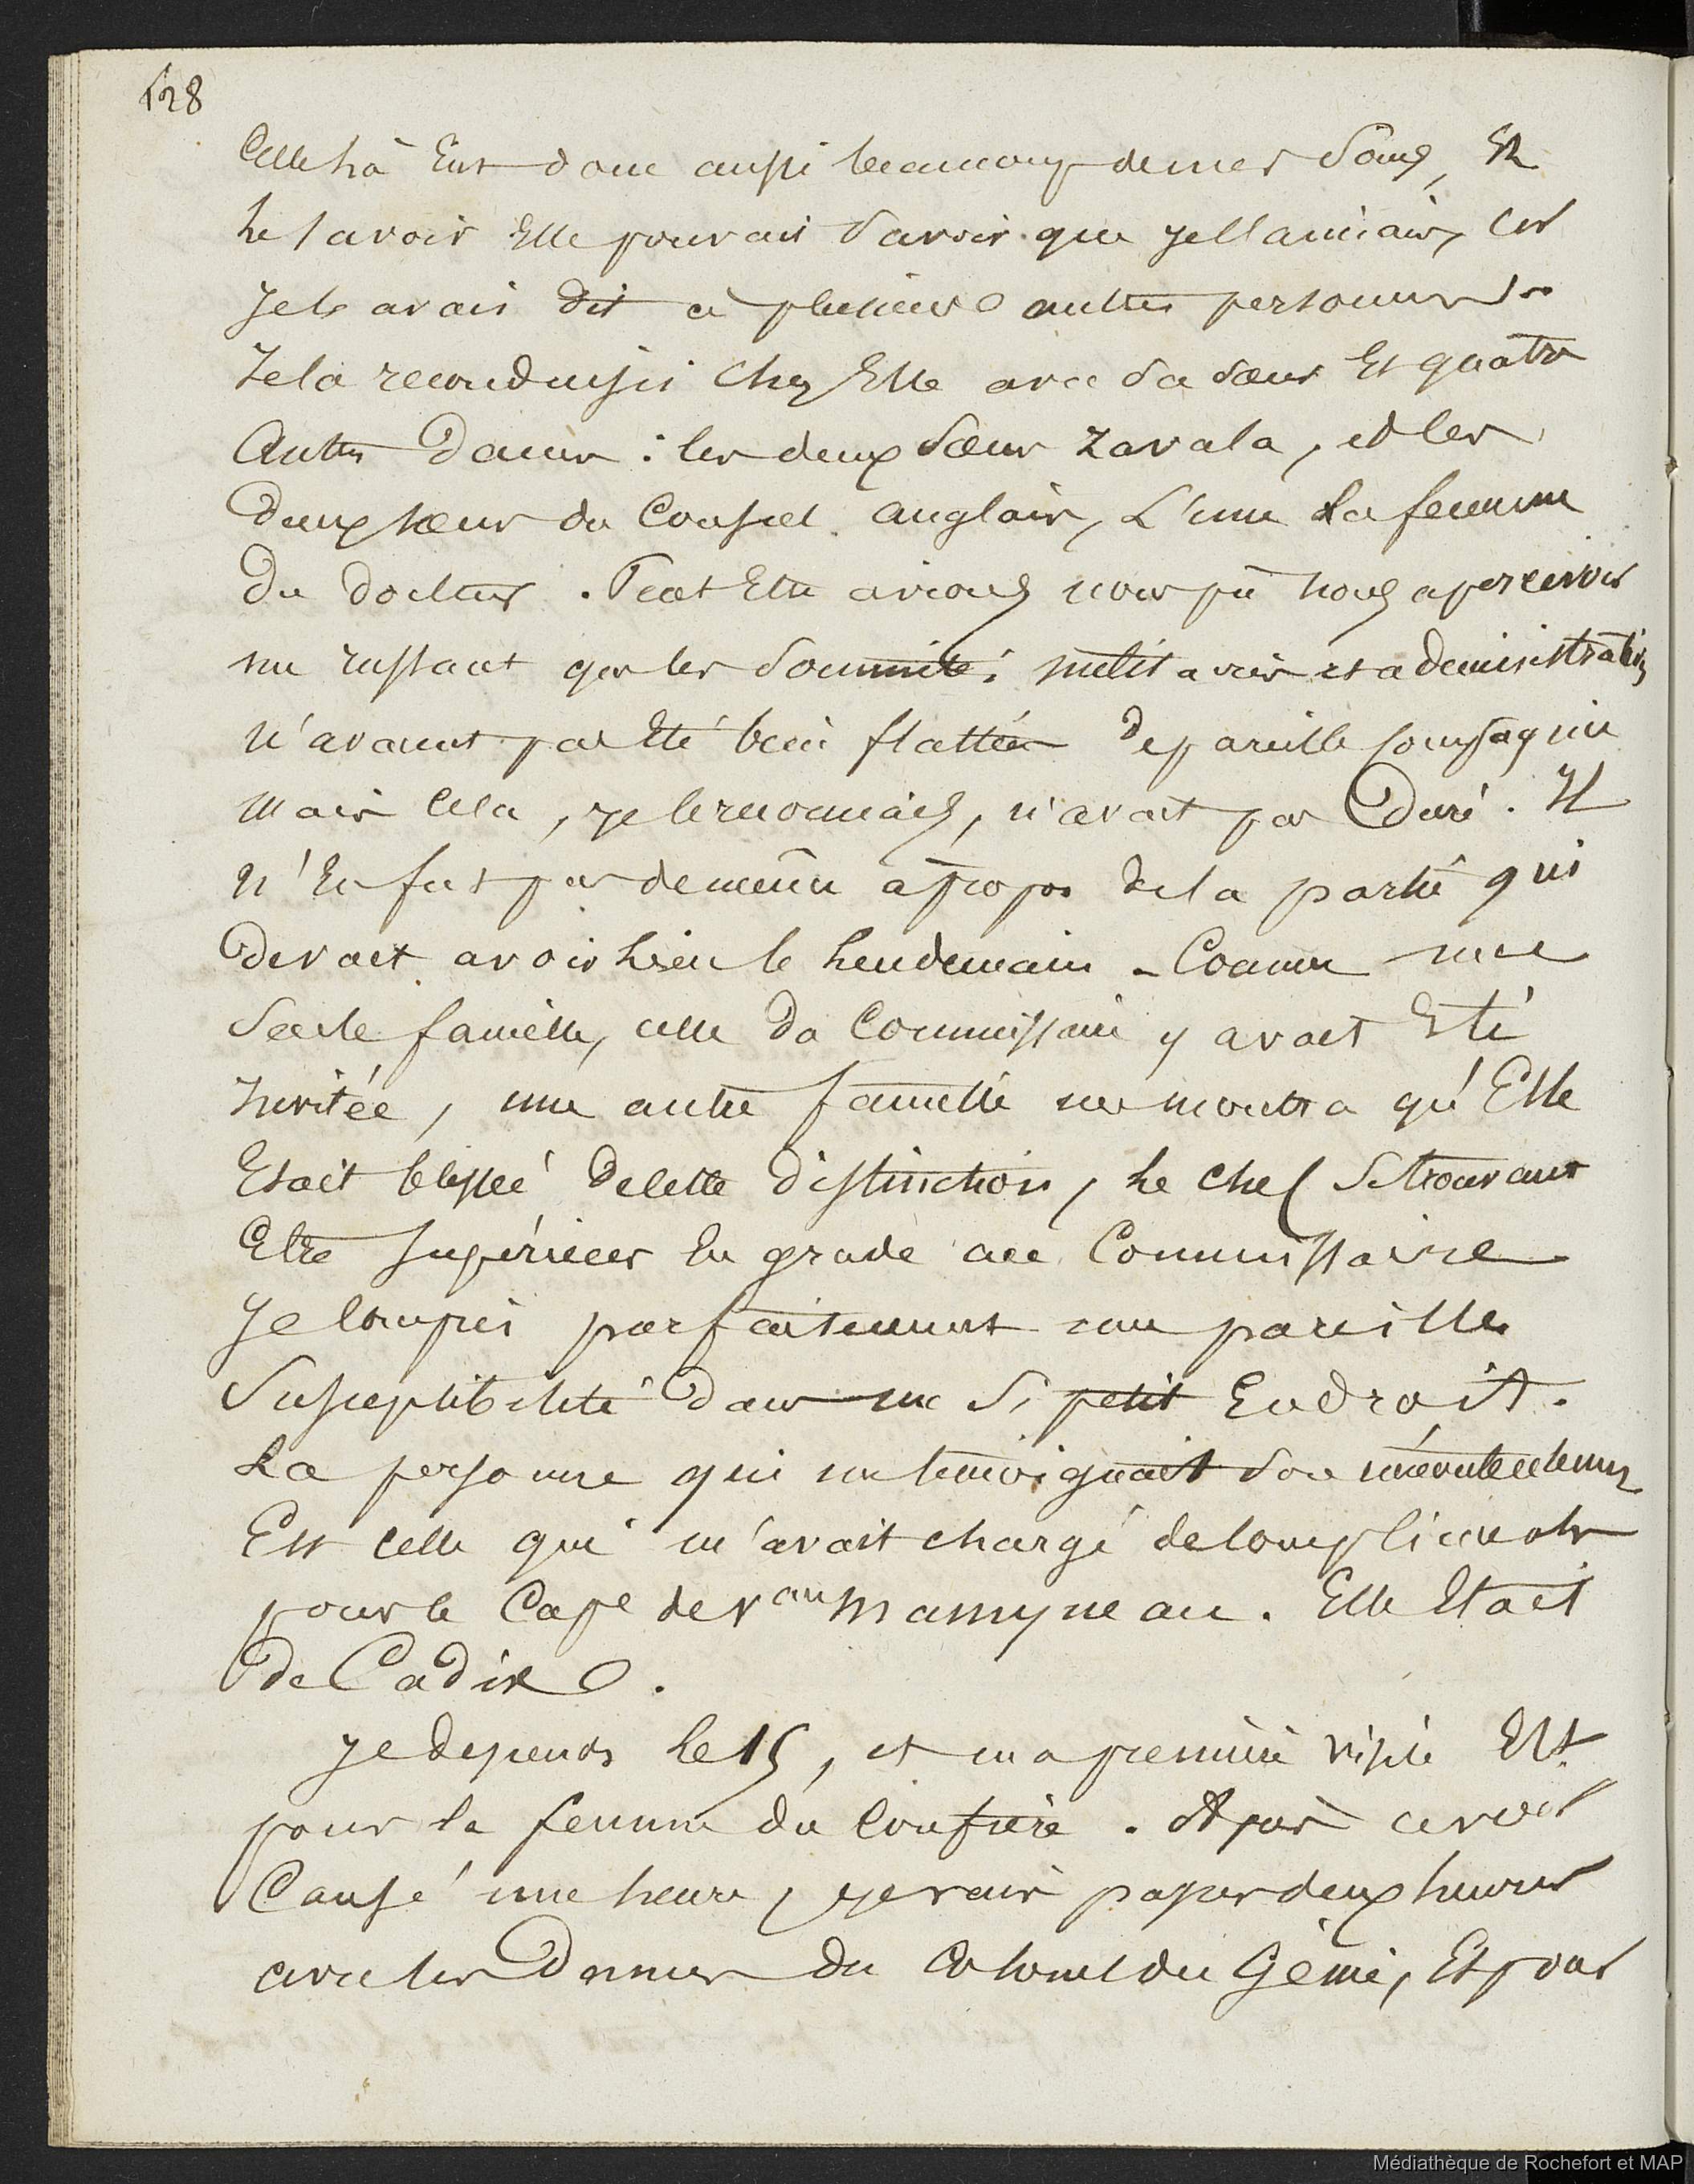 128
Celle là eut donc aussi beaucoup de mes soins, et
le savoir Elle pouvait savoir que je l'aimais, car
Je le avais dit à plusieurs autres personnes
Je la reconduisis chez Elle avec sa sœur Et quatre
Autres Dames : les deux sœurs Zavala, et les
Deux sœurs du Consul anglais, L'une La femme
Du docteur. Peut Etre avions nous pu nous apercevoir
en restant que les sommités militaires et administratives
n'avaient pas Eté bien flattées De pareille compagnie
Mais Cela, je le reconnais, n'avait pas Duré. Il
n'En fut pas de même à propos de la partie qui
Devait avoir lieu le lendemain - Comme une
Seule famille, celle Du Commissaire y avait Eté
Invitée, une autre famille me montra qu'Elle
Etait blessée De cette Distinction, Le chef se trouvant
Etre supérieur En grade au Commissaire
Je compris parfaitement une pareille
Susceptibilité Dans un si petit Endroit.
La personne qui me témoignait son mécontentement
Est celle qui m'avait chargé de compliments
pour le Cape de Vau Mamyneau. Elle Etait
De Cadix.
Je descends le 15, et ma première visite Est
pour la femme du confrère. Après avoir
Causé une heure, je vais passer deux heures
avec les Dames du Colonel du Génie, Et pour
Médiathèque de Rochefort et MAP